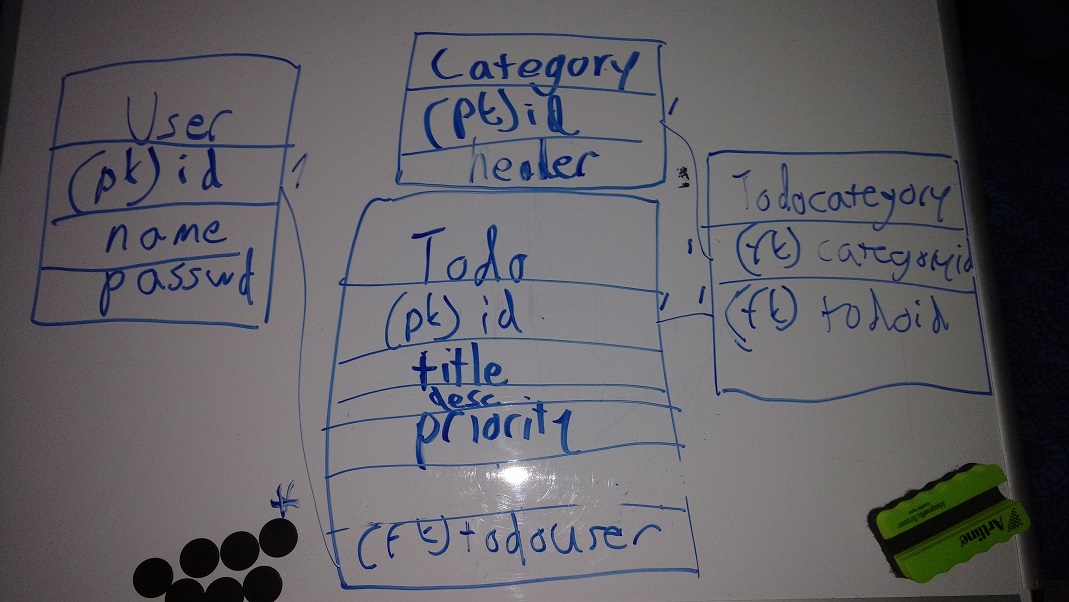 User
(pk) id
name
passwd
1
*
Category
(pk) id
header
1
Todo
(pk) id
title
desc
priority
(fk) todouser
1
Todocategory
(fk) categoryid
(fk) todoid
1
1
Artline